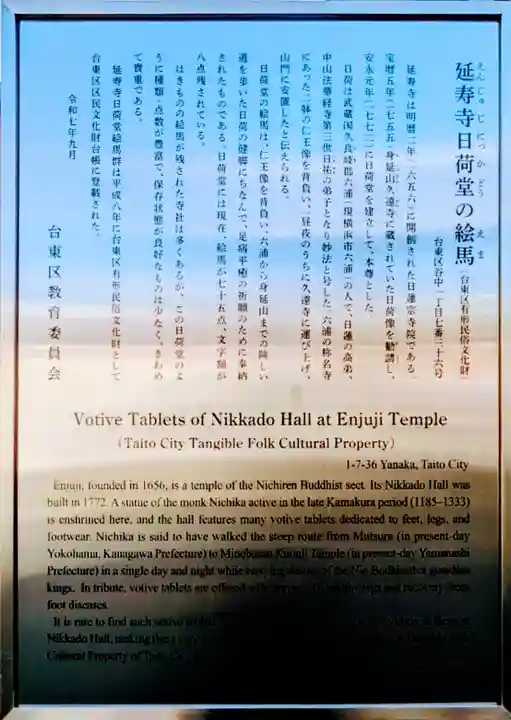 延寿寺日荷堂の絵馬(台東区有形民俗文化財)
えんじゅじにっかどう えま
台東区谷中一丁目七番三十六号
延寿寺は明暦二年(一六五六)に開創された日蓮宗寺院である。
宝暦五年(一七五五)身延山久遠寺に蔵されていた日荷像を勧請し、
安永元年(一七七二)に日荷堂を建立して、本尊とした。
日荷は武蔵国久良岐郡六浦(現横浜市六浦)の人で、日蓮の高弟、
中山法華経寺第三世日祐の弟子となり妙法と号した。六浦の称名寺
にあった二躰の仁王像を背負い、一昼夜のうちに久遠寺に運び上げ、
山門に安置したと伝えられる。
日荷堂の絵馬は、仁王像を背負い、六浦から身延山までの険しい
道を歩いた日荷の健脚にちなんで、足病平癒の祈願のために奉納
されたものである。日荷堂には現在、絵馬が七十五点、文字額が
八点残されている。
はきものの絵馬が残された寺社は多くあるが、この日荷堂のよ
うに種類・点数が豊富で、保存状態が良好なものは少なく、きわめ
て貴重である。
延寿寺日荷堂絵馬群は平成八年に台東区有形民俗文化財として
台東区区民文化財台帳に登載された。
令和七年九月
台東区教育委員会
Votive Tablets of Nikkado Hall at Enjuji Temple
(Taito City Tangible Folk Cultural Property)
1-7-36 Yanaka, Taito City
Enjuji, founded in 1656, is a temple of the Nichiren Buddhist sect. Its Nikkado Hall was
built in 1772. A statue of the monk Nichika active in the late Kamakura period (1185–1333)
is enshrined here, and the hall features many votive tablets dedicated to feet, legs, and
footwear. Nichika is said to have walked the steep route from Mutsura (in present-day
Yokohama, Kanagawa Prefecture) to Minobusan Kuonji Temple (in present-day Yamanashi
Prefecture) in a single day and night while carrying statues of the Nio Bodhisattva guardian
kings. In tribute, votive tablets are offered with prayers for healthy legs and recovery from
foot diseases.
It is rare to find such votive
Nikkado Hall, making them very
Cultural Property of Taito City